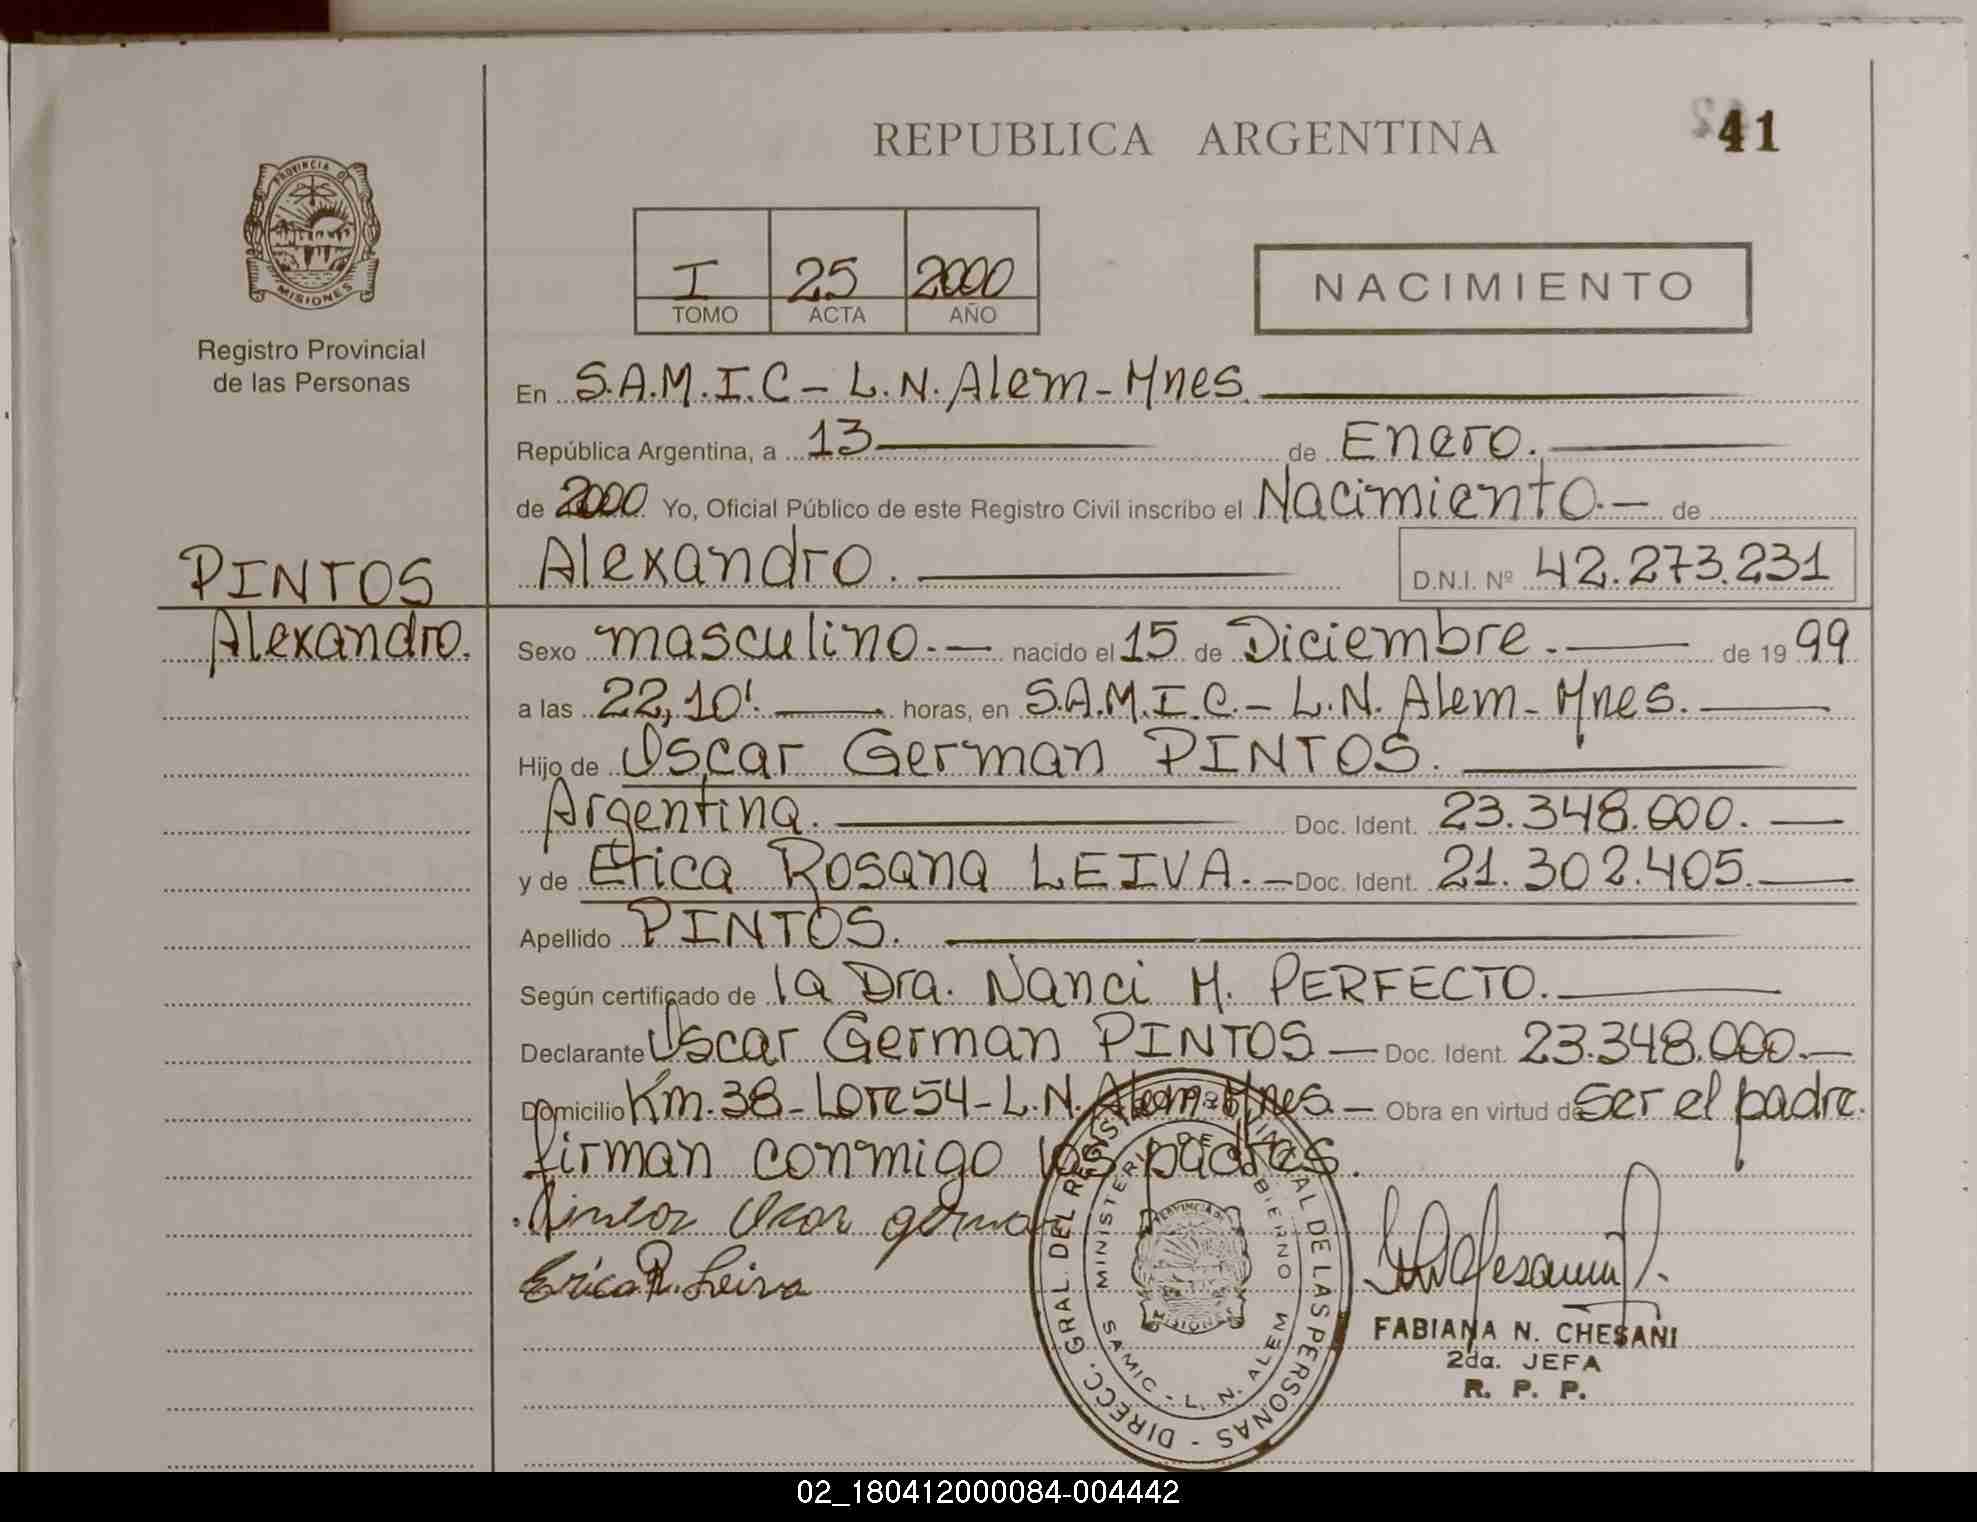 REPUBLICA ARGENTINA
41
PROVINCIA DE
MISIONES
Registro Provincial
de las Personas
I 25 2000
TOMO ACTA AÑO
NACIMIENTO
En S.A.M.I.C - L.N. Alem - Mnes.
República Argentina, a 13 de Enero.
de 2000 Yo, Oficial Público de este Registro Civil inscribo el Nacimiento. - de
PINTOS
Alexandro.
Alexandro.
D.N.I. Nº 42.273.231
Sexo masculino. - nacido el 15 de Diciembre. - de 19 99
a las 22,10'. horas, en S.A.M.I.C. - L.N. Alem - Mnes.
Hijo de Oscar German PINTOS.
Argentina. Doc. Ident. 23.348.000.
y de Erica Rosana LEIVA. - Doc. Ident. 21.302.405.
Apellido PINTOS.
Según certificado de la Dra. Nanci M. PERFECTO.
Declarante Oscar German PINTOS - Doc. Ident. 23.348.000. -
Domicilio Km. 38 - Lote 54 - L.N. Alem - Mnes. - Obra en virtud de Ser el padre.
firman conmigo los padres.
Pintos Oscar german
Erica R. Leiva
DIRECC. GRAL. DEL REGISTRO PROVINCIAL DE LAS PERSONAS -
MINISTERIO DE GOBIERNO
SAMIC - L. N. ALEM
FABIANA N. CHESANI
2da. JEFA
R. P. P.
02_180412000084-004442